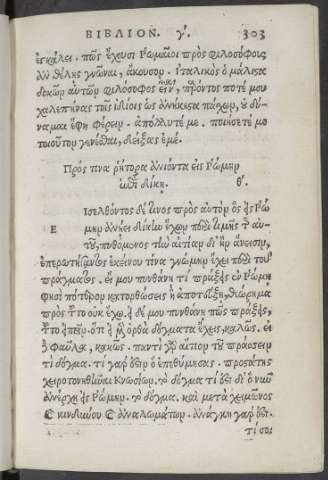 ΒΙΒΛΙΟΝ. γ'. 303
ἐγκαλεῖ. πῶς ἔχουσι Ῥωμαῖοι πρὸς φιλοσόφους
ἂν θέλῃς γνῶναι, ἄκουσον. Ἰταλικὸς ὁ μάλιστα
δοκῶν αὐτῶν φιλόσοφος εἶναι, παρόντος ποτέ μου
χαλεπήνας τοῖς ἰδίοις ὡς ἀνήκεστα πάσχων, οὐ δύ-
ναμαι ἔφη φέρειν. ἀπόλλυτέ με. ποιήσετέ με
τοιοῦτον γενέσθαι, δείξας ἐμέ.
Πρός τινα ῥήτορα ἀνιόντα εἰς Ῥώμην
ἐπὶ δίκῃ. θ'.
Εἰσελθόντος δέ τινος πρὸς αὐτὸν ὃς εἰς Ῥώ
μην ἀνῄει δίκην ἔχων περὶ τιμῆς τῆς αὐ-
τοῦ, πυθόμενος τὴν αἰτίαν δι' ἣν ἄνεισιν,
ἐπερωτήσαντος ἐκείνου τίνα γνώμην ἔχει περὶ τοῦ
πράγματος. εἴ μου πυνθάνῃ τί πράξεις ἐν Ῥώμῃ
φησὶ πότερον κατορθώσεις ἢ ἀποτεύξῃ, θεώρημα
πρὸς τοῦτο οὐκ ἔχω. εἰ δέ μου πυνθάνῃ πῶς πράξεις,
τοῦτο εἰπεῖν. ὅτι εἰ μὲν ὀρθὰ δόγματα ἔχεις, καλῶς. εἰ
δὲ φαῦλα, κακῶς. παντὶ γὰρ αἴτιον τοῦ πράσσειν
τι δόγμα. τί γάρ ἐστιν ὃ ἐπεθύμησας. προστάτης
χειροτονηθῆναι Κνωσίων. τὸ δόγμα. τί ἐστι δι' ὃ νῦν
ἀνέρχῃ εἰς Ῥώμην. τὸ δόγμα. καὶ μετὰ χειμῶνος
καὶ κινδύνου καὶ ἀναλωμάτων. ἀνάγκη γάρ ἐστι.
τί σοι